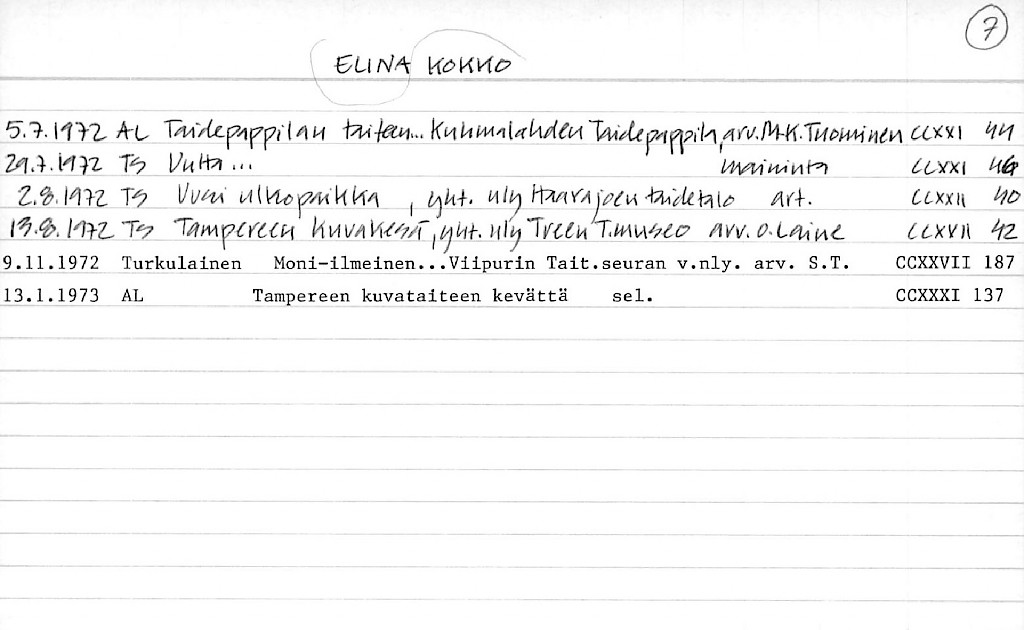 7
ELINA KOKKO
5.7.1972 AL Taidepappilan taiteen... Kuhmalahden Taidepappila, arv. M-K. Tuominen CCXXI 44
29.7.1972 TS ... maininta CCXXI
2.8.1972 TS Uusi ulkopaikka, yht. nly Haarajoen taidetalo art. CCXXII 40
13.8.1972 TS Tampereen kuvakesä, yht. nly Treen T.museo arv. O. Laine CCXVII 42
9.11.1972 Turkulainen Moni-ilmeinen...Viipurin Tait.seuran v.nly. arv. S.T. CCXXVII 187
13.1.1973 AL Tampereen kuvataiteen kevättä sel. CCXXXI 137